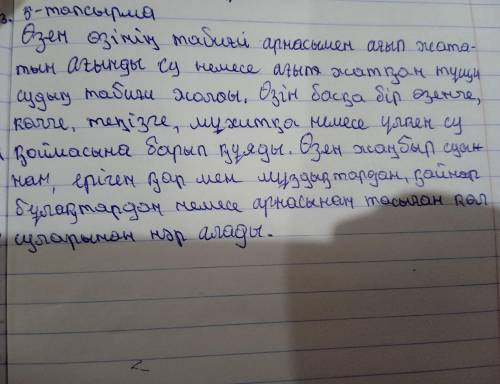 5-тапсырма
Өзен өзінің табиғи арнасымен ағып жата-
тын ағынды су немесе ағып жатқан тұщы
судың табиғи жолы. Өзін басқа бір өзенге,
көлге, теңізге, мұхитқа немесе үлкен су
қоймасына барып құяды. Өзен жаңбыр суы-
нан, еріген қар мен мұздықтардан, қайнар
бұлақтардан немесе арнасынан тасыған көл
суларынан нәр алады.